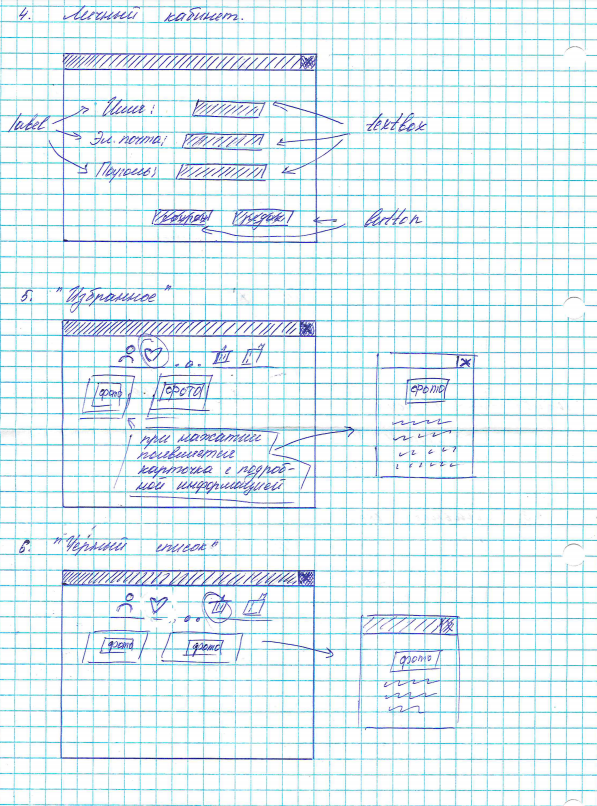 4. Личный кабинет.
label
Имя:
textbox
Эл. почта:
Пароль:
button
5. "Избранное"
фото
фото
фото
при нажатии
появляется
карточка с подроб-
ной информацией
6. "Чёрный список"
фото
фото
фото